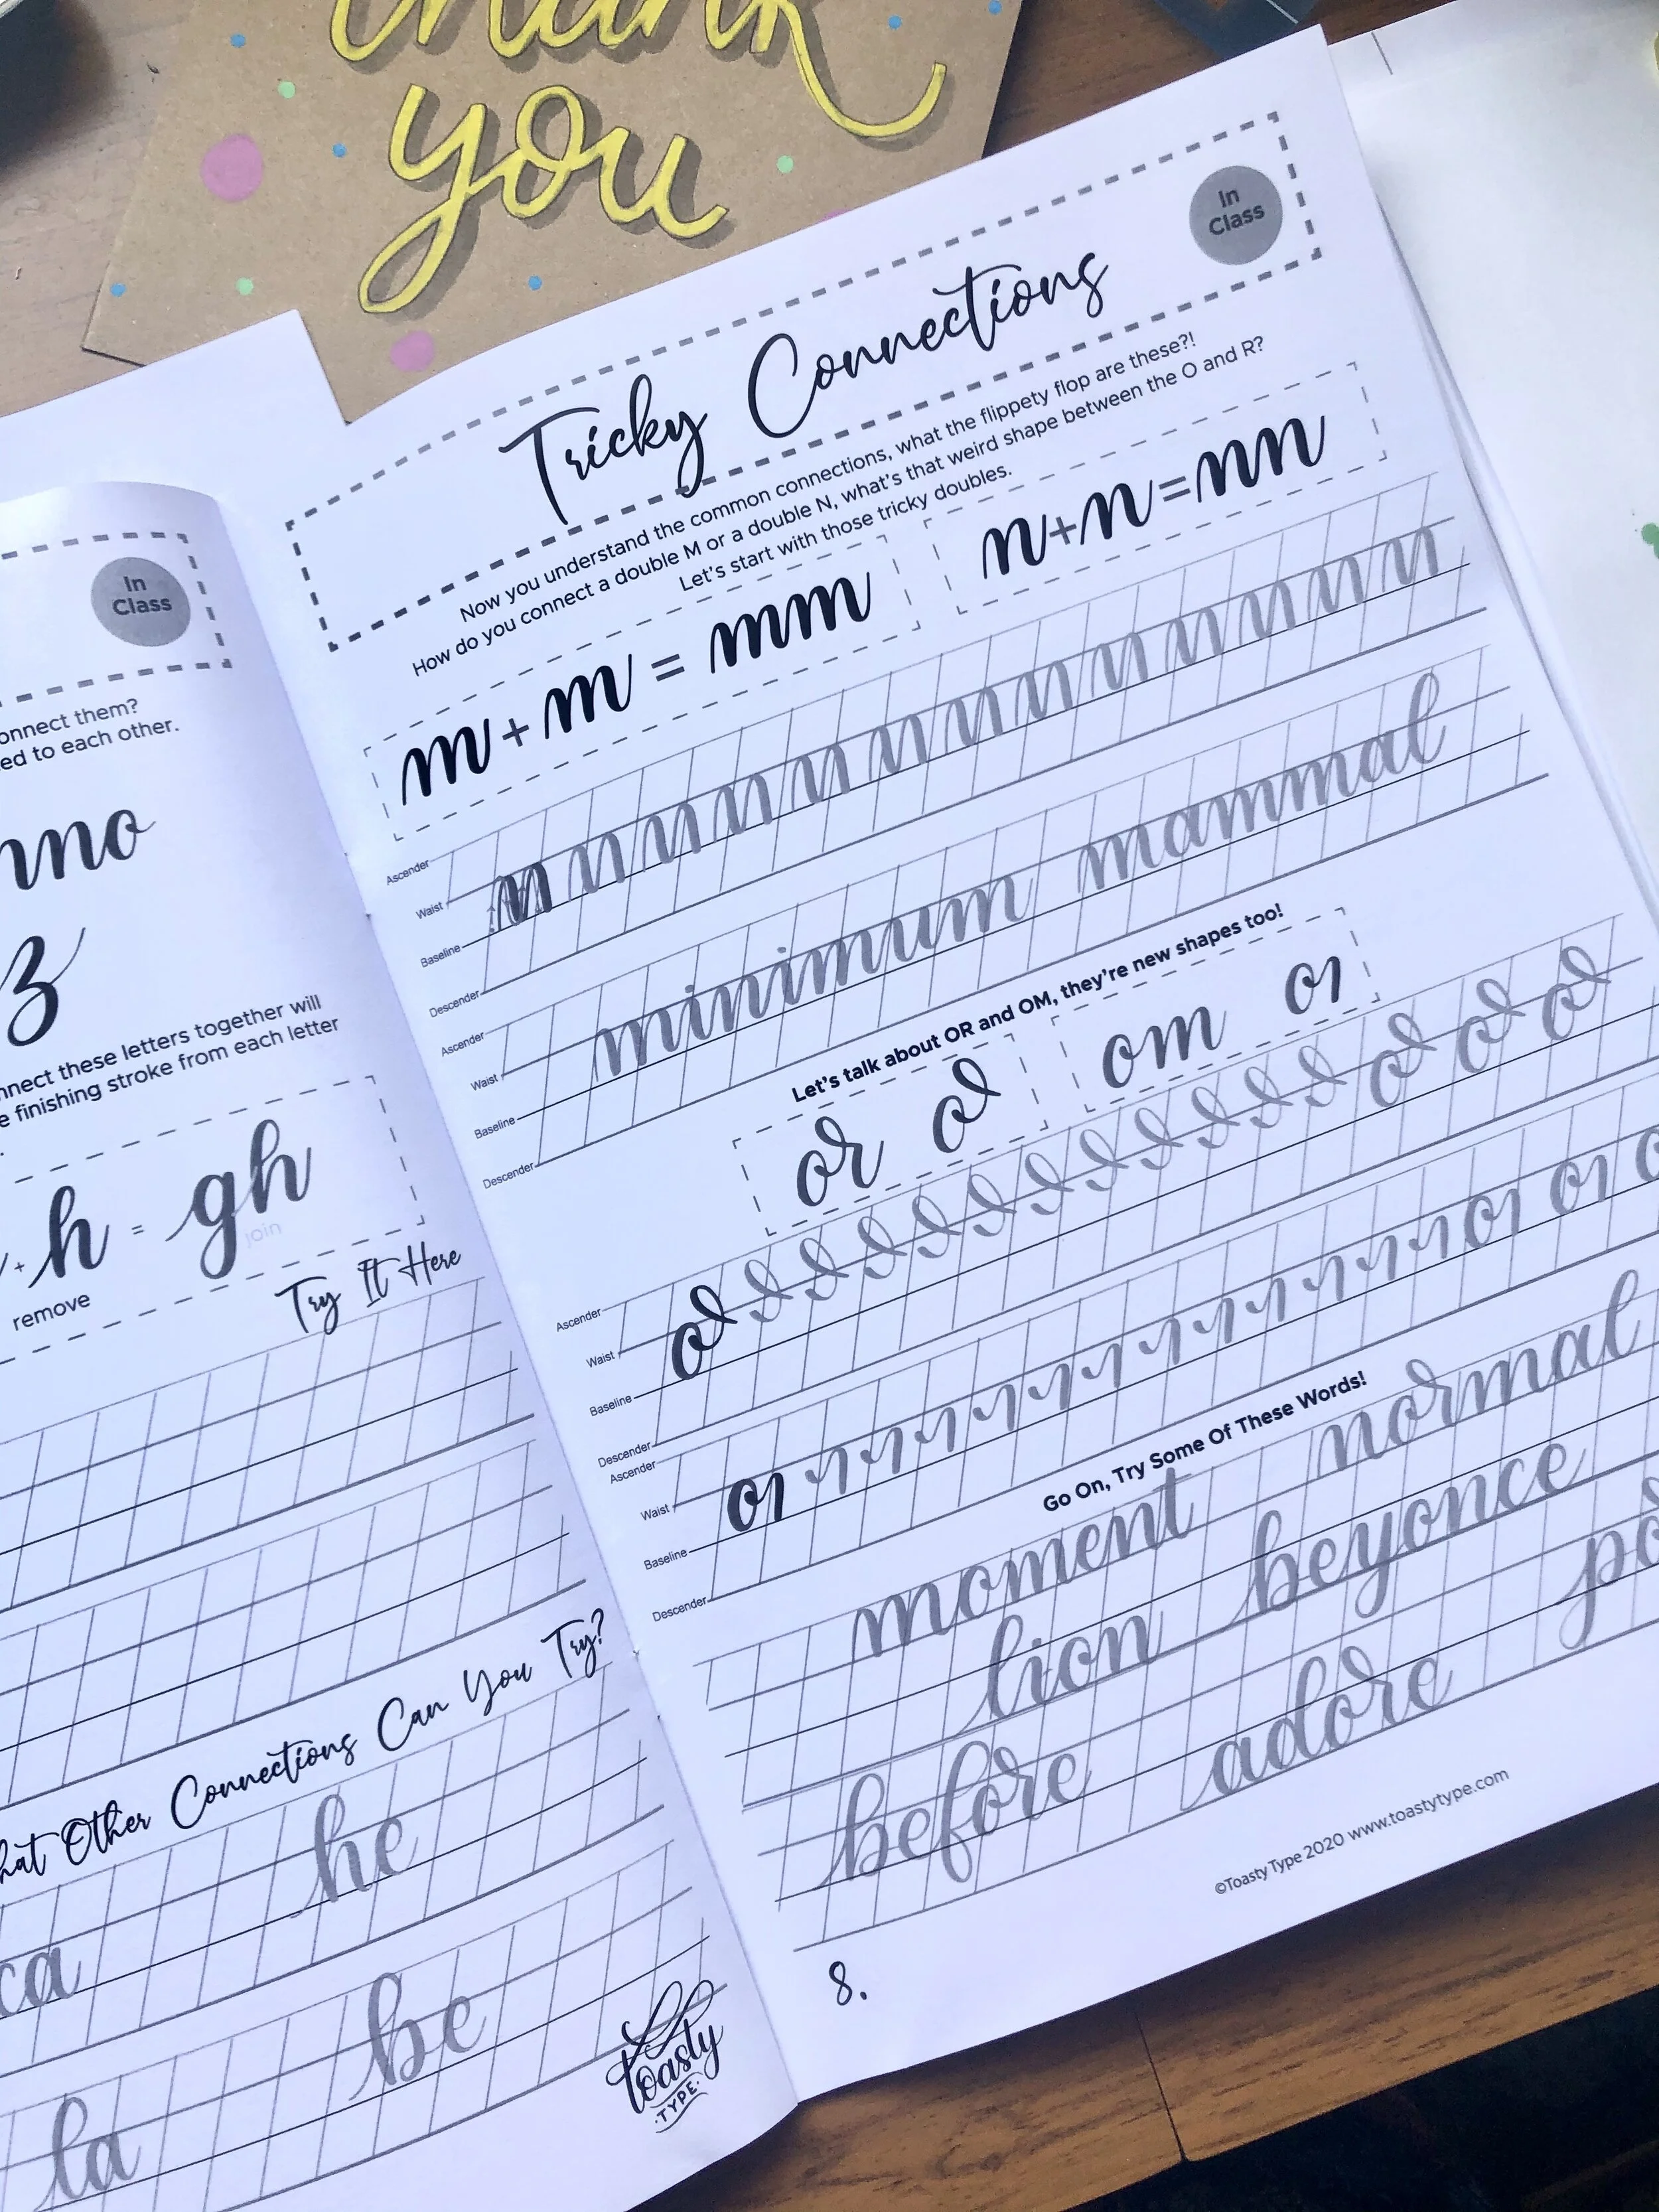 thank
you
In
Class
onnect them?
ed to each other.
nno
z
nnect these letters together will
e finishing stroke from each letter
+ h = gh
join
remove
Try It Here
hat Other Connections Can You Try?
ca he
la be
toasty
TYPE
In
Class
Tricky Connections
Now you understand the common connections, what the flippety flop are these?!
How do you connect a double M or a double N, what's that weird shape between the O and R?
Let's start with those tricky doubles.
m + m = mm
n+n=nn
Ascender
Waist
Baseline
Descender
Ascender
Waist
Baseline
Descender
minimum mammal
Let's talk about OR and OM, they're new shapes too!
or
om
Ascender
Waist
Baseline
Descender
Ascender
Waist
Baseline
Descender
Go On, Try Some Of These Words!
moment normal
lion beyonce
before adore po
©Toasty Type 2020 www.toastytype.com
8.